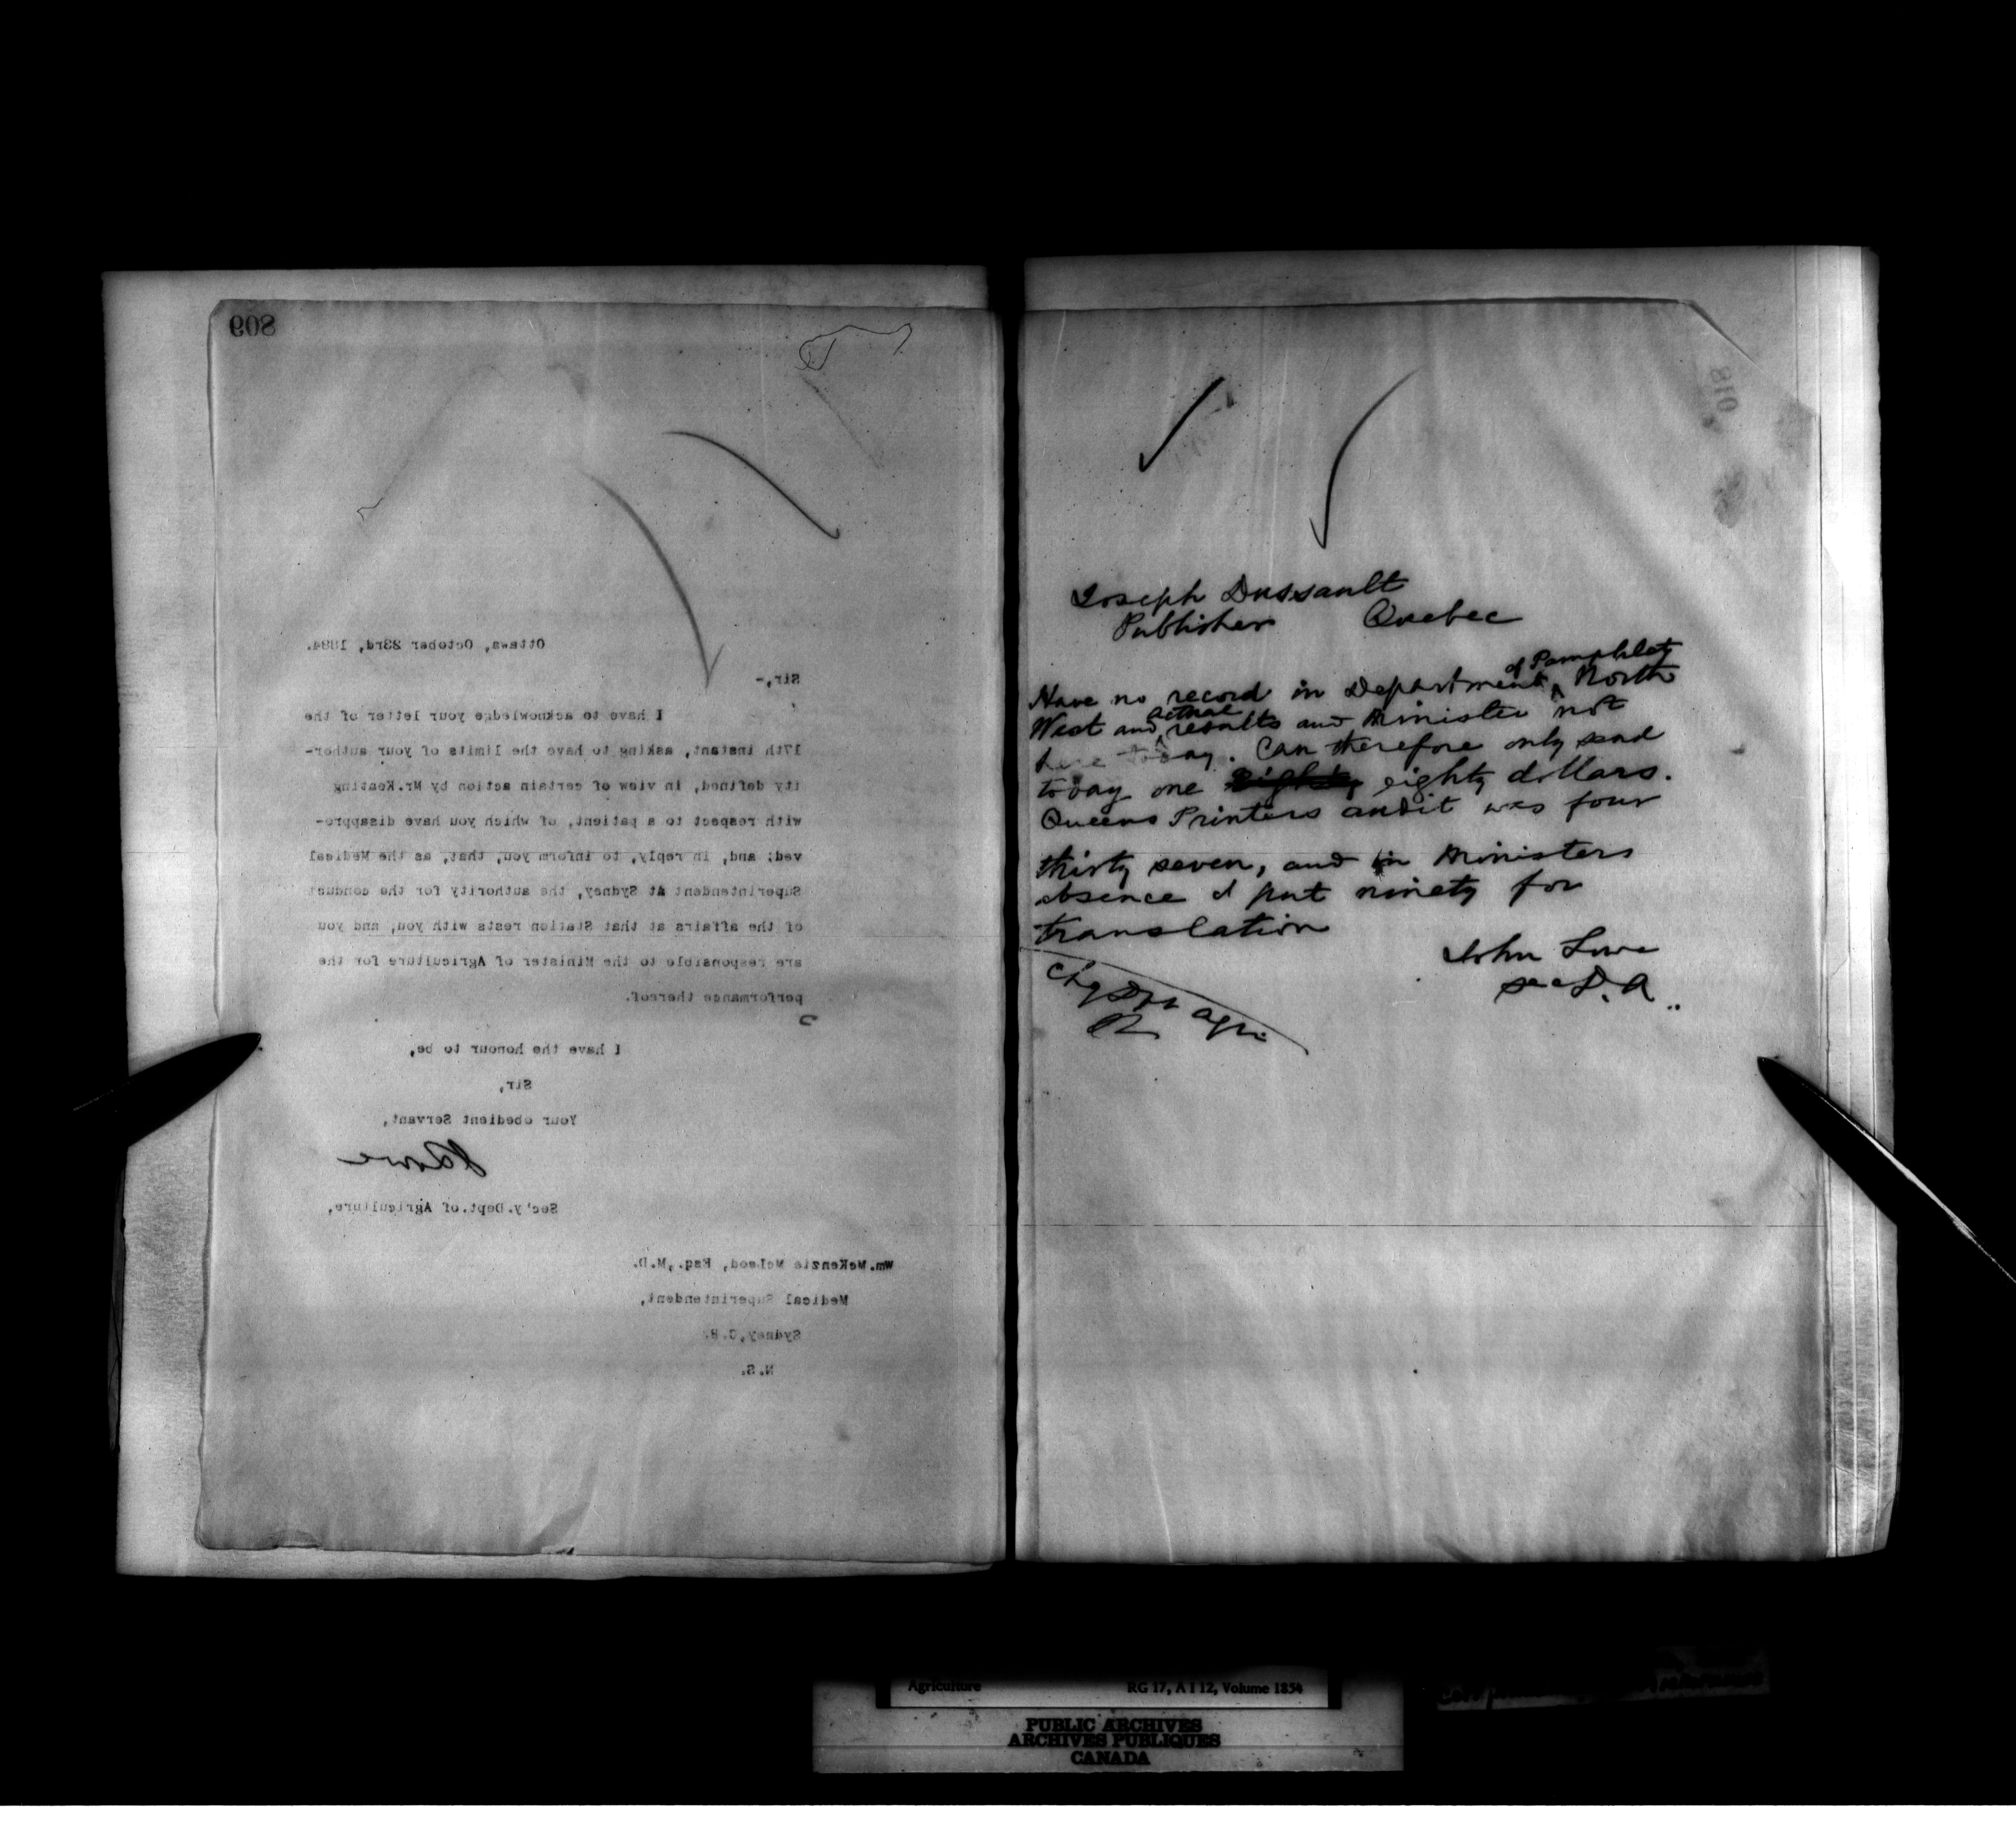 809
Ottawa, October 23rd, 1884.
Sir,-
I have to acknowledge your letter of the
17th instant, asking to have the limits of your author-
ity defined, in view of certain action by Mr.Keating
with respect to a patient, of which you have disappro-
ved; and, in reply, to inform you, that, as the Medical
Superintendent At Sydney, the authority for the conduct
of the affairs at that Station rests with you, and you
are responsible to the Minister of Agriculture for the
performance thereof.
I have the honour to be,
Sir,
Your obedient Servant,
J Lowe
Sec'y.Dept.of Agriculture,
Wm.McKenzie McLeod, Esq.,M.D.
Medical Superintendent,
Sydney,C.B.
N.S.
810
Joseph Dussault
Publisher Quebec
of Pamphlet
Have no record in Department North
actual
West and results and Minister not
here today. Can therefore only send
today one eighty dollars.
Queens Printers audit was four
thirty seven, and in Ministers
absence I put ninety for
translation
John Lowe
Sec D. A.
Chg Dpt Agr.
Agriculture RG 17, A I 12, Volume 1854
PUBLIC ARCHIVES
ARCHIVES PUBLIQUES
CANADA